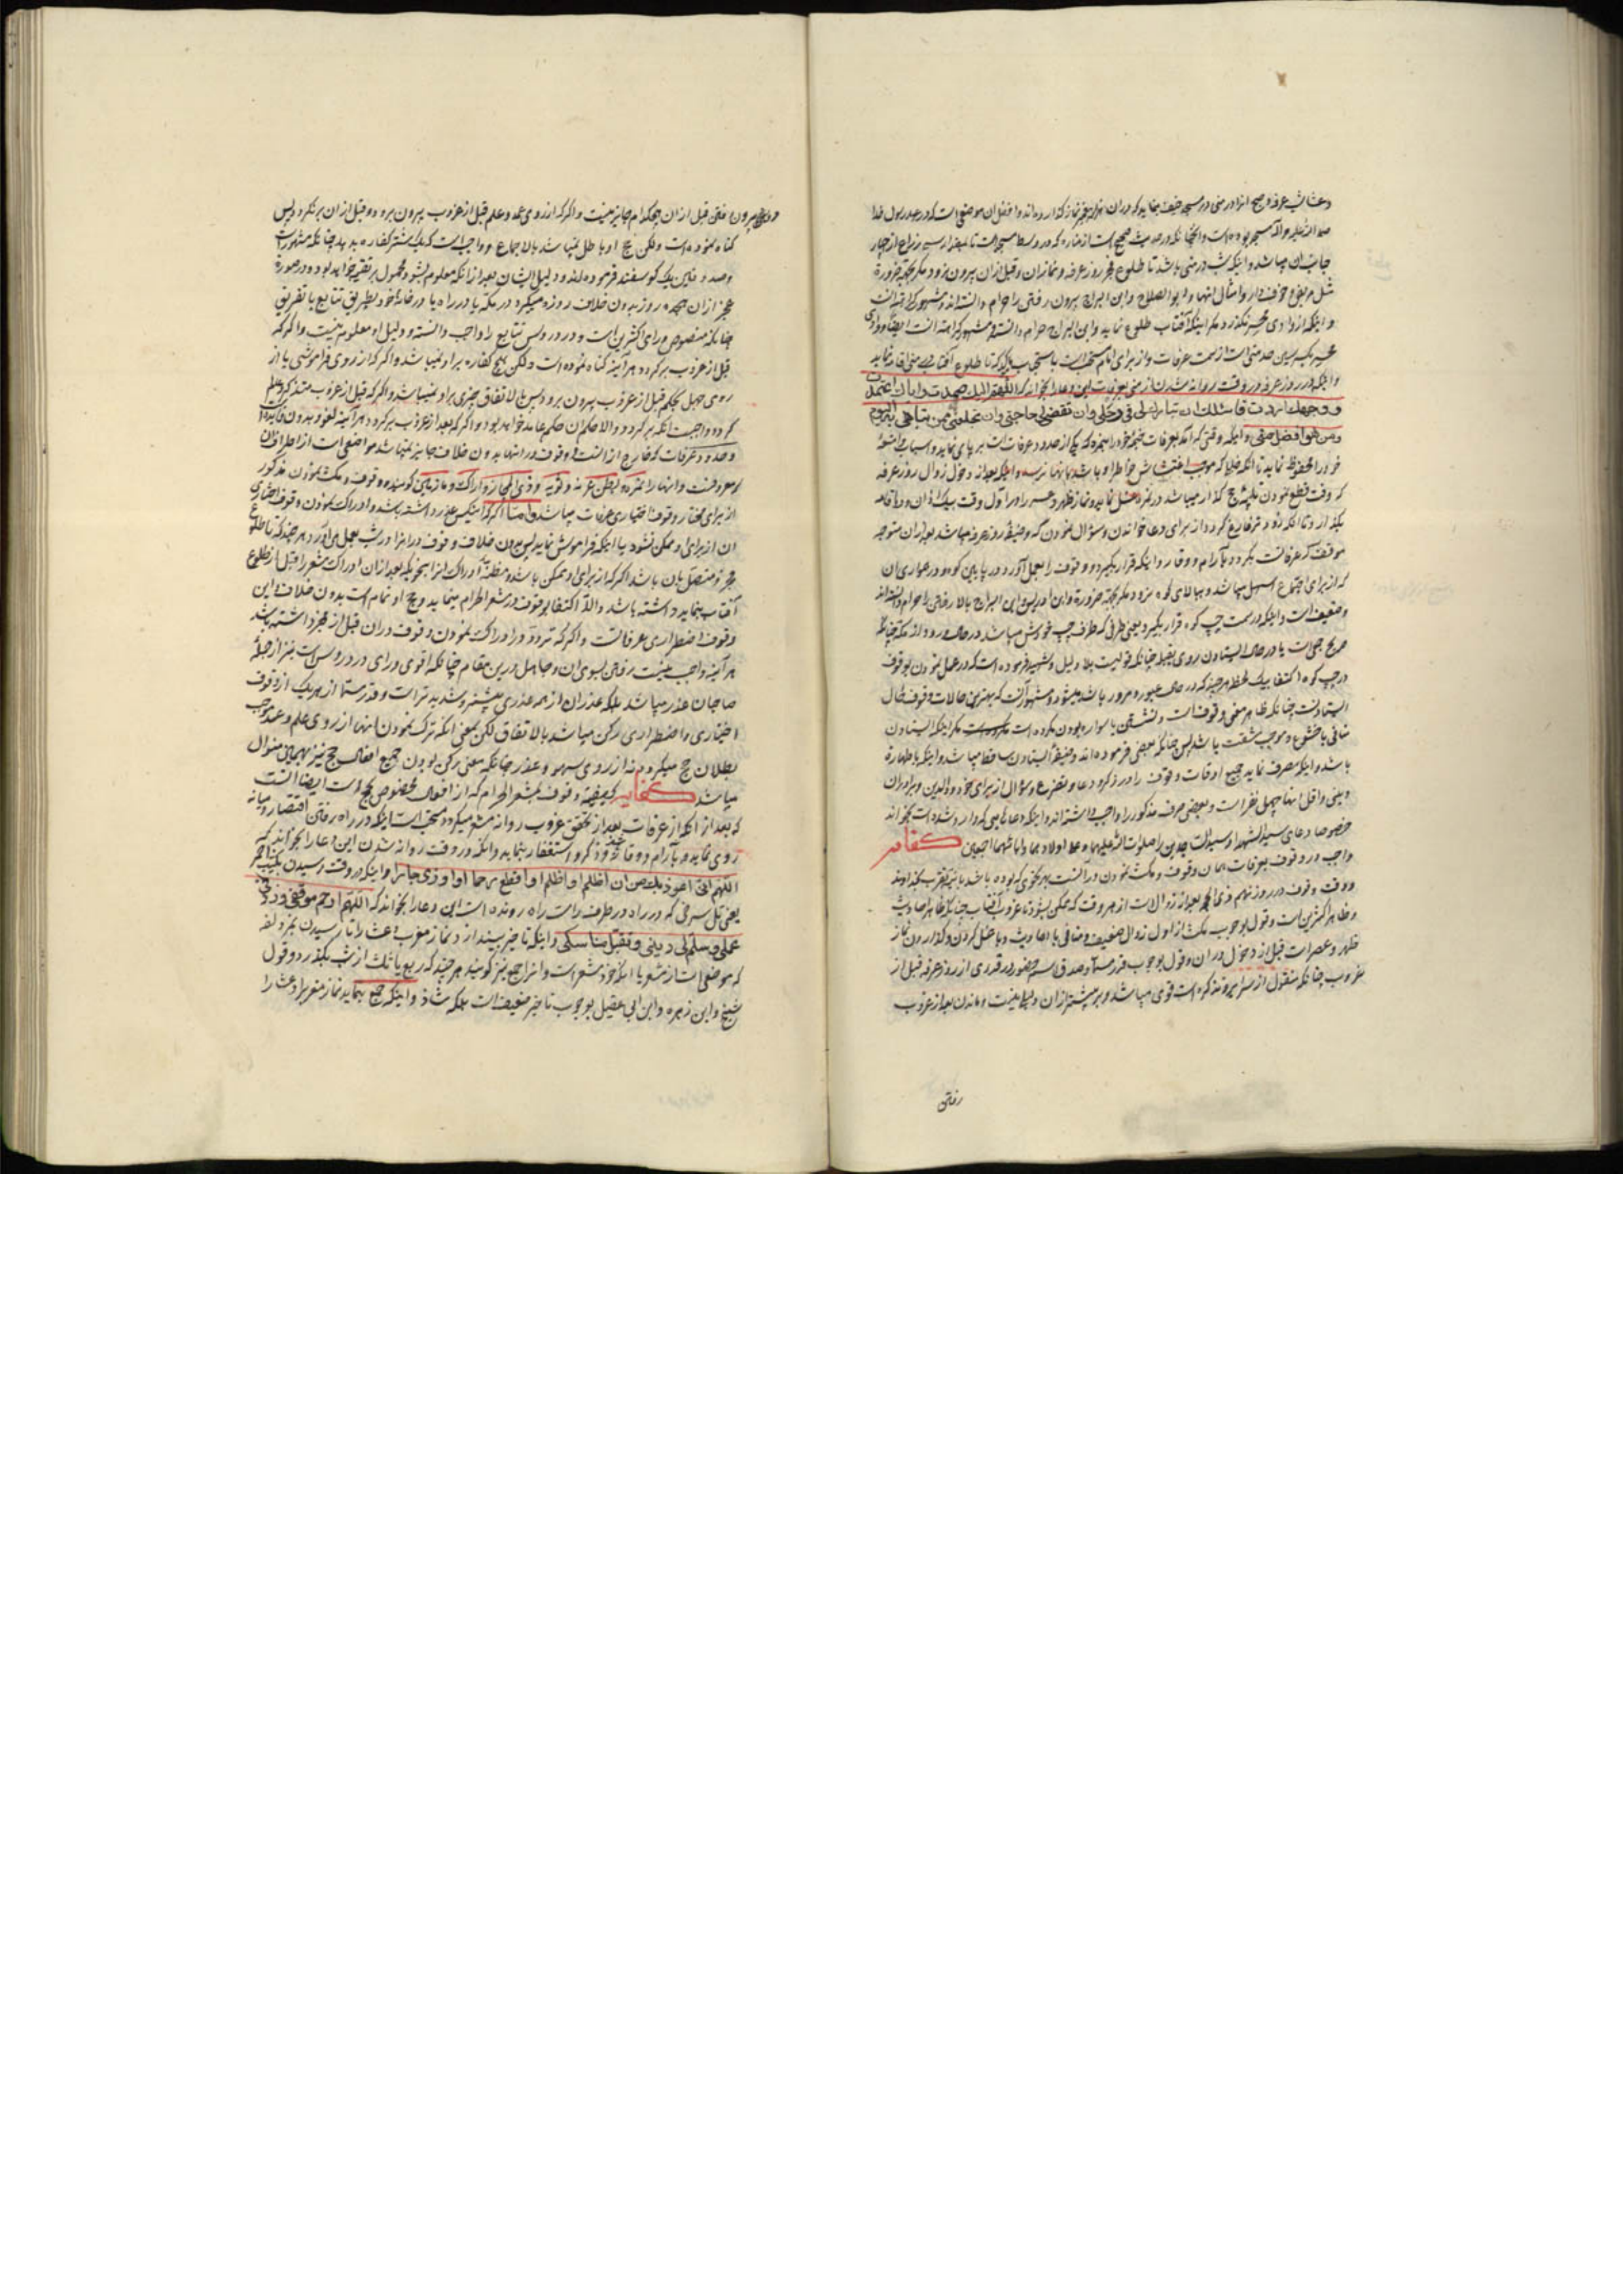 و عشا شب عرفه و صبح انرا در منی در مسجد خیف بنماید که در ان هزار پیغمبر نماز کذارده‌اند و افضل ان موضعی است که در عهد رسول خدا
صلی الله علیه و آله مسجد بوده است و انچنانکه در حدیث صحیح است از مناره که در وسط مسجد است تا بمقدار سی ذراع از چهار
جانب ان میباشد و اینکه شب در منی باشد تا طلوع فجر روز عرفه و نماز ان و قبل از ان بیرون نرود مکر بجهة ضرورة
مثل مریض و خوف دار و امثال انها و ابو الصلاح و ابن البراج بیرون رفتن را حرام دانسته‌اند و مشهور کراهة انست
و اینکه از وادی محسر نکذرد مکر اینکه آفتاب طلوع نماید و ابن البراج حرام دانسته و مشهور کراهة انست ایضا و وادی
محسر یک سمت عرفات و از برای امام مستحب است باستحباب مؤکد که تا طلوع آفتاب در منی اقامه نماید
و اینکه در روز عرفه در وقت روانه شدن از منی بعرفات این دعا را بخواند که اللهم الیک صمدت و ایاک اعتمدت
و وجهک اردت فاسئلک ان تبارک لی فی رحلی و ان تقضی لی حاجتی و ان تجعلنی ممن تباهی به الیوم
و من هو افضل منی و اینکه وقتی که آمد بعرفات خیمه خود را بنمره که یکی از حدود عرفات است بر پای نماید و اسباب و امتعهٔ
خود را محفوظ نماید تا انکه خللی که موجب اغتشاش خواطر او باشد بانها نرسد و اینکه بعد از دخول زوال روز عرفه
که وقت قطع نمودن تلبیهٔ حج کذار میباشد در نمره غسل نماید و نماز ظهر و عصر را در اول وقت بیک اذان و دو اقامه
بکذارد تا انکه زودتر فارغ کردد از برای دعا خواندن و سؤال نمودن که وظیفهٔ روز عرفه میباشد بعد از ان متوجه
موقف که عرفانست بکردد بآرام و وقار و اینکه قرار بکیرد و وقوف را بعمل آورد در پایین کوه و در همواری ان
که از برای اجتماع اسهل میباشد و ببالای کوه نرود مکر بجهة ضرورة و ابن ادریس و ابن البراج بالا رفتن را حرام دانسته‌اند
و ضعیف است و اینکه در سمت چپ کوه قرار بکیرد یعنی طرفی که طرف چپ خودش میباشد در حال ورود از مکه چنانکه
صریح جمعی است یا در حال ایستادن روی بقبله چنانکه قولیست بلا دلیل و شهید فرموده است که در عمل نمودن بوقوف
در چپ کوه اکتفا بیک لحظه هر چند که در حال عبور و مرور باشد میشود و مشهور آنست که بهترین حالات وقوف حال
ایستادنست چنانکه ظاهر معنی وقوف است و نشستن یا سواره بودن مکروه است مکر اینکه ایستادن
منافی با خشوع و موجب مشقت باشد پس چنانکه بعضی فرموده‌اند وظیفهٔ ایستادن ساقط میباشد و اینکه با طهارة
باشد و اینکه مصرف نماید جمیع اوقات وقوف را در ذکر و دعا و تضرع و سؤال از برای خود و والدین و برادران
دینی و اقل انها چهل نفر است و بعضی صرف مذکور را واجب دانسته‌اند و اینکه دعاهایی که وارد شده است بخواند
خصوصا دعای سید الشهدا و سید الساجدین را صلوات الله علیهما و علی اولادهما و ابائهما اجمعین کفایه
واجب در وقوف بعرفات همان وقوف و مکث نمودن در آنست بهر نحوی که بوده باشد با نیة تقرب بخداوند
و وقت وقوف در روز نهم ذی الحجه بعد از زوال است از هر وقت که ممکن بشود تا غروب آفتاب چنانکه ظاهر احادیث
و ظاهر اکثرین است و قول بوجوب مکث از اول زوال ضعیف و منافی با احادیث و با غسل کردن و کذاردن نماز
ظهر و عصر است قبل از دخول در ان و قول بوجوب قدر مسما و صدق اسم حضور در قدری از روز عرفه قبل از
غروب چنانکه منقول از سرایر و تذکره است قوی میباشد و بر بیشتر از ان دلیلی نیست و ماندن بعد از غروب
رفتن
بیرون رفتن قبل از ان هیچکدام جایز نیست و اکر که از روی عمد و علم قبل از غروب بیرون برود و قبل از ان برنکردد پس
کناه نموده است ولکن حج او باطل نمیباشد بالاجماع و واجب است که یک شتر کفاره بدهد چنانکه مشهور است
و صدوقین یک کوسفند فرموده‌اند و دلیل ایشان بعد از انکه معلوم بشود محمول بر تقیه خواهد بود و در صورة
عجز از ان هیجده روز بدون خلاف روزه میکیرد در مکه یا در راه یا در خانهٔ خود بطریق تتابع یا تفریق
چنانکه منصوص و رای اکثرین است و در دروس تتابع را واجب دانسته و دلیل او معلوم نیست و اکر که
قبل از غروب برکردد هر آینه کناه نموده است ولکن هیچ کفاره بر او نمیباشد و اکر که از روی فراموشی یا از
روی جهل بحکم قبل از غروب بیرون برود پس بالاتفاق چیزی بر او نمیباشد و اکر که قبل از غروب متذکر و عالم
کردد واجبست انکه برکردد و الا حکم ان حکم عامد خواهد بود و اکر که بعد از غروب برکردد هر آینه لغو و بدون فایده است
و حدود عرفات که خارج از انست و وقوف در انها بدون خلاف جایز نمیباشد مواضعی است از اطراف ان
که معروفست و انها را نمره و بطن عرنه و ثویه و ذی المجاز و اراک و مازمین کویند و وقوف و مکث نمودن مذکور
از برای مختار وقوف اختیاری عرفات میباشد و اما اکر که اینکس عذر داشته باشد و ادراک نمودن وقوف اختیاری
ان از برای او ممکن نشود یا اینکه فراموش نماید پس بدون خلاف وقوف در انرا در شب بعمل می‌آورد هر چند که تا طلوع
فجر و متصل بان باشد اکر که از برای او ممکن باشد و مظنهٔ ادراک انرا بنحویکه بعد از ان ادراک مشعر را قبل از طلوع
آفتاب بنماید داشته باشد و الا اکتفا بوقوف در مشعر الحرام مینماید و حج او تمام است بدون خلاف و این
وقوف اضطراری عرفانست و اکر که تردد در ادراک نمودن وقوف در ان قبل از فجر داشته باشد
هر آینه واجب نیست رفتن بسوی ان و جاهل در این مقام چنانکه اقوی و رای در دروس است نیز از جملهٔ
صاحبان عذر میباشد بلکه عذر ان از همه عذری بیشتر و شدیدتر است و قدر مسما از هر یک از وقوف
اختیاری و اضطراری رکن میباشد بالاتفاق لکن بمعنی اینکه ترک نمودن انها از روی علم و عمد موجب
بطلان حج میکردد نه از روی سهو و عذر چنانکه معنی رکن بودن جمیع افعال حج نیز بهمین منوال
میباشد کفایه کیفیة وقوف مشعر الحرام که از افعال مخصوص بحج است ایضا انست
که بعد از انکه از عرفات بعد از تحقق غروب روانهٔ مشعر میکردد مستحب است اینکه در راه رفتن اقتصاد و میانه
روی نماید و بآرام و وقار خود و ذکر و استغفار بنماید و انکه در وقت روانه شدن این دعا را بخواند که
اللهم انی اعوذ بک من ان اظلم او اظلم او اقطع رحما او اوذی جارا و اینکه در وقت رسیدن بکثیب احمر
یعنی تل سرخی که در راه در طرف راست راه رونده است این دعا را بخواند که اللهم ارحم موقفی و زد فی
عملی و سلم لی دینی و تقبل مناسکی و اینکه تاخیر بیندازد نماز مغرب و عشا را تا رسیدن بمزدلفه
که موضعی است از مشعر یا انکه خود مشعر است و انرا جمع نیز کویند هر چند که ربع یا ثلث از شب بکذرد و قول
شیخ و ابن زهره و ابن ابی عقیل بوجوب تاخیر ضعیف است بلکه شاذ و اینکه جمع بنماید نماز مغرب را و عشا را